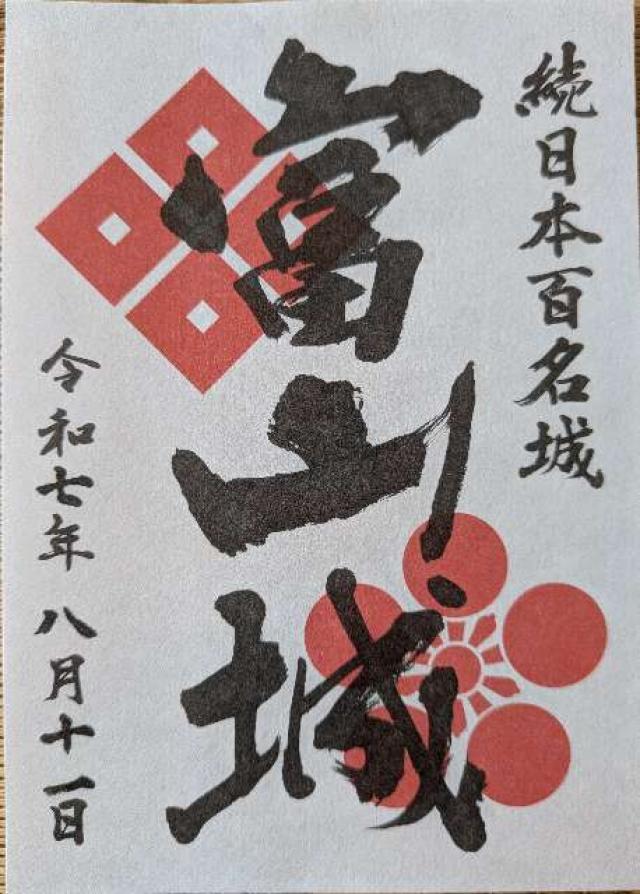 続日本百名城
富山城
令和七年 八月十一日